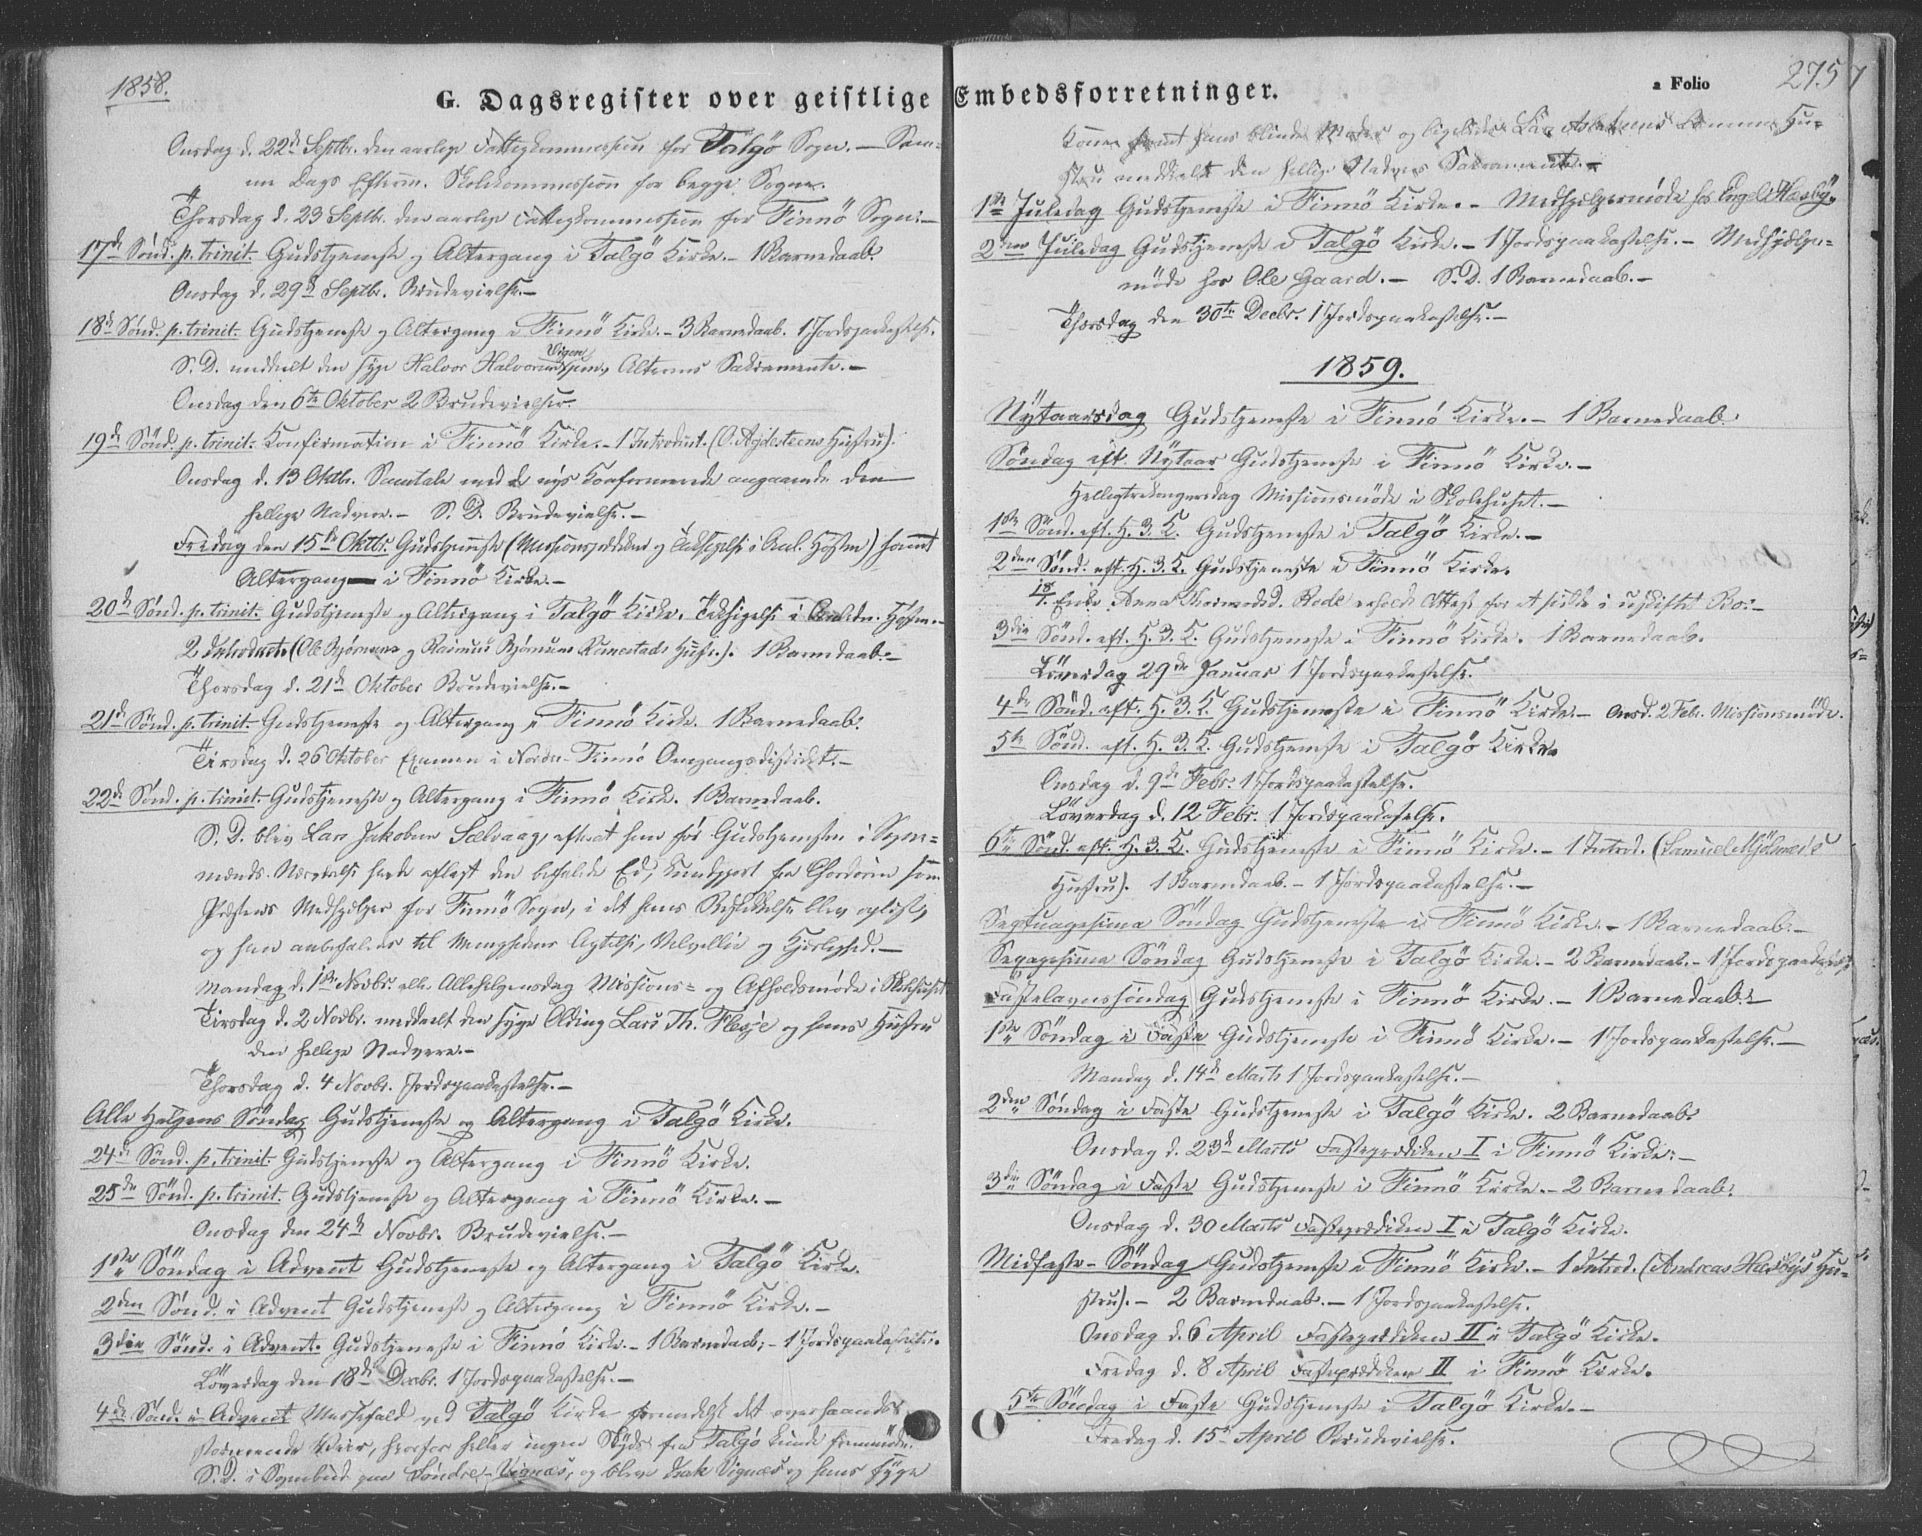 1858.
G. Dagsregister over geistlige
Onsdag d. 22de Septbr. den aarlige Fattigkommission for Talgö Sogn. — Sam-
me Dags Efterm. Skolekommission for begge Sogne.
Thorsdag d. 23 Septbr. den aarlige Fattigkommission for Finnö Sogn. —
17de Sønd. p. trinit. Gudstjeneste og Altergang i Talgö Kirke. — 1 Barnedaab.
Onsdag d. 29de Septbr. Brudevielse. —
18de Sønd. p. trinit. Gudstjeneste og Altergang i Finnö Kirke. — 3 Barnedaab. 1 Jordspaakastelse.
S. D. meddelt den syge Halvor Halvorsen Vigen Alterens Sakramente. —
Onsdag den 6te Oktober 2 Brudevielser.
19de Sønd. p. trinit. Konfirmation i Finnö Kirke. — 1 Introduct. (O. Hustru).
Onsdag d. 13 Oktbr. Samtale med de nys Konfirmerede angaaende den
hellige Nadver. — S. D. Brudevielse. —
Fredag den 15de Oktbr. Gudstjeneste (Missionsprædiken og Taksigelse i Anl. Høsten) samt
Altergang i Finnö Kirke. —
20de Sønd. p. trinit. Gudstjeneste og Altergang i Talgö Kirke. Taksigelse i Anledn. Høsten. —
2 Introducte (Ole Bjørnsens og Rasmus Bjørnsens Reimestads Hustr.). 1 Barnedaab. —
Thorsdag d. 21de Oktober Brudevielse. —
21de Sønd. p. trinit. Gudstjeneste og Altergang i Finnö Kirke. 1 Barnedaab.
Tirsdag d. 26 Oktober Examen i Nordre-Finnö Omgangsdistrikt. —
22de Sønd. p. trinit. Gudstjeneste og Altergang i Finnö Kirke. 1 Barnedaab.
S. D. blev Lars Jakobsen Sælvaag, efterat han før Gudstjenesten i Sogne-
mænds Nærværelse havde aflagt den befalede Ed, kundgjort fra Chordøren som
Præstens Medhjelper for Finnö Sogn, i det hans Beskikkelse blev oplæst,
og han anbefaledes til Menighedens Agtelse, Velvillie og Kjerlighed. —
Mandag d. 1ste Novbr. eller Allehelgensdag Missions- og Afholdsmøde i Skolehuset
Tirsdag d. 2 Novbr. meddelt den syge Olding Lars Th. Flesje og hans Hustru
den hellige Nadvere. —
Thorsdag d. 4 Novbr. Jordspaakastelse. —
Alle Helgens Søndag Gudstjeneste og Altergang i Talgö Kirke.
24de Sønd. p. trinit. Gudstjeneste og Altergang i Finnö Kirke.
25de Sønd. p. trinit. Gudstjeneste og Altergang i Finnö Kirke. —
Onsdag den 24de Novbr. Brudevielse. —
1ste Søndag i Advent Gudstjeneste og Altergang i Talgö Kirke.
2den Sønd. i Advent Gudstjeneste og Altergang i Finnö Kirke. —
3die Sønd. i Advent. Gudstjeneste i Finnö Kirke. — 1 Barnedaab. — 1 Jordspaakastelse.
Löverdag den 18de Decbr. 1 Jordspaakastelse. —
4de Sønd. i Advent Messefald ved Talgö Kirke formedelst det overhaands
stormende Veir, hvorfor heller ingen Skyds fra Talgö kunde fremmøde.
S. D. i Sognebud paa Søndre-Vignæs, og blev Isak Vignæs og hans syge
Embedsforretninger.
a Folio 275
Kone samt hans blinde Moder og ligeledes Hu-
stru meddelt den hellige Nadvers Sakramente. —
1ste Juledag Gudstjeneste i Finnö Kirke. — Medhjelpermøde hos Engel Hæsby.
2den Juledag Gudstjeneste i Talgö Kirke. — 1 Jordspaakastelse. — Medhjelper-
møde hos Ole Gaard. — S. D. 1 Barnedaab. —
Thorsdag den 30te Decbr. 1 Jordspaakastelse. —
1859.
Nytaarsdag Gudstjeneste i Finnö Kirke. — 1 Barnedaab.
Søndag eft. Nytaar Gudstjeneste i Finnö Kirke. —
Helligtrekongersdag Missionsmöde i Skolehuset. —
1ste Sønd. eft. H. 3. K. Gudstjeneste i Talgö Kirke. —
2den Sønd. eft. H. 3. K. Gudstjeneste i Finnö Kirke.
18/1. Enke Anna Thormodsd. Bode erholdt Attest for at sidde i uskiftet Bo. —
3die Sønd. eft. H. 3. K. Gudstjeneste i Finnö Kirke. 1 Barnedaab.
Löverdag 29de Januar 1 Jordspaakastelse.
4de Sønd. eft. H. 3. K. Gudstjeneste i Finnö Kirke. — Onsd. 2 Febr. Missionsmøde.
5te Sønd. eft. H. 3. K. Gudstjeneste i Talgö Kirke.
Onsdag d. 9de Febr. 1 Jordspaakastelse.
Löverdag d. 12 Febr. 1 Jordspaakastelse.
6te Sønd. eft. H. 3. K. Gudstjeneste i Finnö Kirke. — 1 Introd. (Samuel Mjølsnæs's
Hustru). 1 Barnedaab. — 1 Jordspaakastelse. —
Septuagesima Søndag Gudstjeneste i Finnö Kirke. — 1 Barnedaab. —
Sexagesima Søndag Gudstjeneste i Talgö Kirke. — 2 Barnedaab. — 1 Jordspaakast.
Fastelavnssøndag Gudstjeneste i Finnö Kirke. — 1 Barnedaab. —
1ste Søndag i Faste Gudstjeneste i Finnö Kirke. — 1 Jordspaakastelse. —
Mandag d. 14de Marts 1 Jordspaakastelse. —
2den Søndag i Faste Gudstjeneste i Talgö Kirke. 2 Barnedaab.
Onsdag d. 23de Marts Fasteprædiken I i Finnö Kirke. —
3die Søndag i Faste Gudstjeneste i Finnö Kirke. — 2 Barnedaab.
Onsdag d. 30 Marts Fasteprædiken I i Talgö Kirke.
Midfaste-Søndag Gudstjeneste i Finnö Kirke. — 1 Introd. (Andreas Hæsbys Hu-
stru). — 2 Barnedaab. — 1 Jordspaakastelse.
Onsdag d. 6 April Fasteprædiken II i Talgö Kirke.
Fredag d. 8 April Fasteprædiken II i Finnö Kirke.
5te Søndag i Faste Gudstjeneste i Talgö Kirke. —
Fredag d. 15de April Brudevielse.